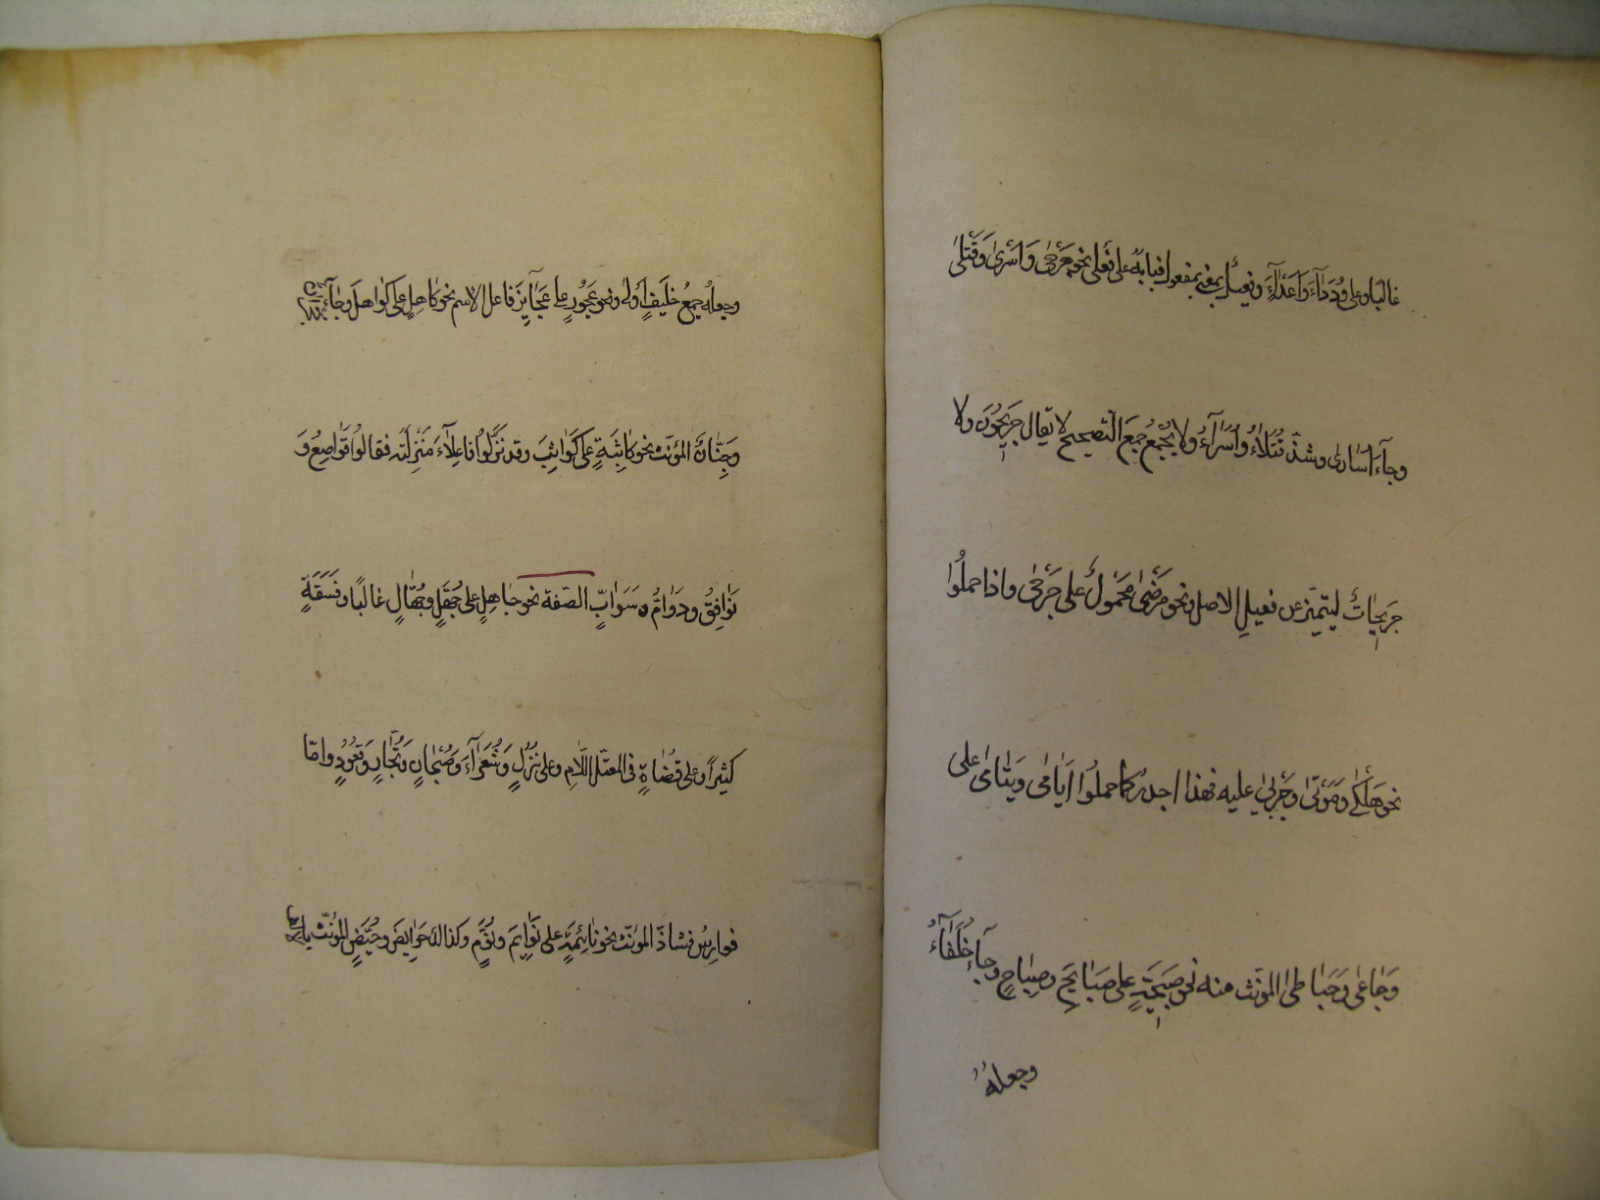 غالبا وعلى وُدَدَآءَ وَاَعْدَآءٍ وفعيلٌ بمعنى مفعول فبابه على فَعْلَى نحو جَرْحٰى وَاَسْرٰى وَقَتْلٰى
وجآءَ اُسَارٰى وشذّ قُتَلَاءُ وَاُسَرَآءُ ولا يُجْمَعُ جَمْعَ التصحيح لا يقال جَرِيحُونَ ولا
جَرِيحَاتٌ ليتميّز عن فعيلِ الاصل ونحو مَرْضٰى محمولٌ على جَرْحٰى واذا حملُوا
نحو هَلْكٰى ومَوْتٰى وجَرْبٰى عليه فهذا اجدر كما حملُوا اَيَامٰى ويَتَامٰى على
وَجَاعٰى وَحَبَاطٰى المؤنّث منه نحو صَبِيحَةٍ على صَبَايحَ وصِبَاحٍ وجآءَ خُلَفَآءُ
وجعلهُ
وجعلهُ جمعُ خليفٍ اَولٰى ونحو عَجُوزٍ على عَجَآيِزَ فاعل الاسم نحو كاهِلٍ على كَوَاهلَ وجآءَ
وجِنَّانٌ المؤنّث نحو كَاثِبَةٍ على كَوَاثِبَ وقد نزّلُوا فَاعِلَآءَ مَنْزِلَتَه فقالوُا قَوَاصِعُ وَ
نَوَافِقُ ودَوَامُّ ه سَوَابٍّ الصّفة نحو جَاهِلٍ على جُهَّلٍ وجُهَّالٍ غالبًا وفَسَقَةٍ
كثيرًا وعلى قُضَاةٍ فى المعتلّ اللّام وعلى بُزُلٍ وَشُعَرَآءَ وصُحْبَانٍ وتُجَّارٍ وقُعُودٍ وامّا
فوارِسُ فشاذّ المؤنّث نحو نَائِمَةٍ على نَوَايمَ ونُوَّمٍ وكذالك حَوَايضَ وحُيَّضٍ المؤنّث